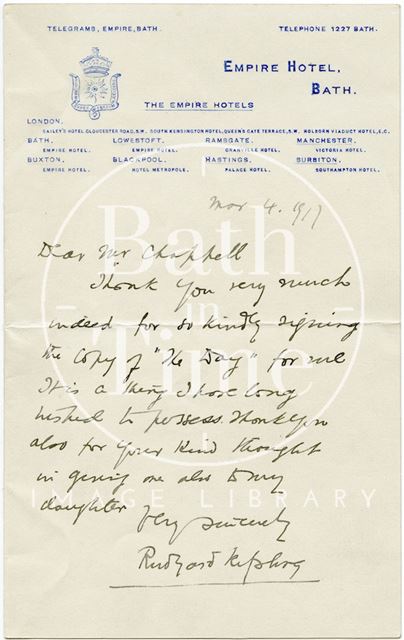 TELEGRAMS, EMPIRE, BATH.
TELEPHONE 1227 BATH.
EMPIRE HOTEL,
BATH.
THE EMPIRE HOTELS
LONDON.
BAILEY'S HOTEL, GLOUCESTER ROAD, S.W. SOUTH KENSINGTON HOTEL, QUEEN'S GATE TERRACE, S.W. HOLBORN VIADUCT HOTEL, E.C.
BATH. LOWESTOFT. RAMSGATE. MANCHESTER.
EMPIRE HOTEL. EMPIRE HOTEL. GRANVILLE HOTEL. VICTORIA HOTEL.
BUXTON. BLACKPOOL. HASTINGS. SURBITON.
EMPIRE HOTEL. HOTEL METROPOLE. PALACE HOTEL. SOUTHAMPTON HOTEL.
Mar 4. 1917
Dear Mr Chappell
Thank you very much
indeed for so kindly signing
the copy of "The Day" for me
It is a thing I have long
wished to possess. Thank you
also for your kind thought
in giving one also to my
daughter
Very sincerely
Rudyard Kipling
Bath
in
Time
IMAGE LIBRARY